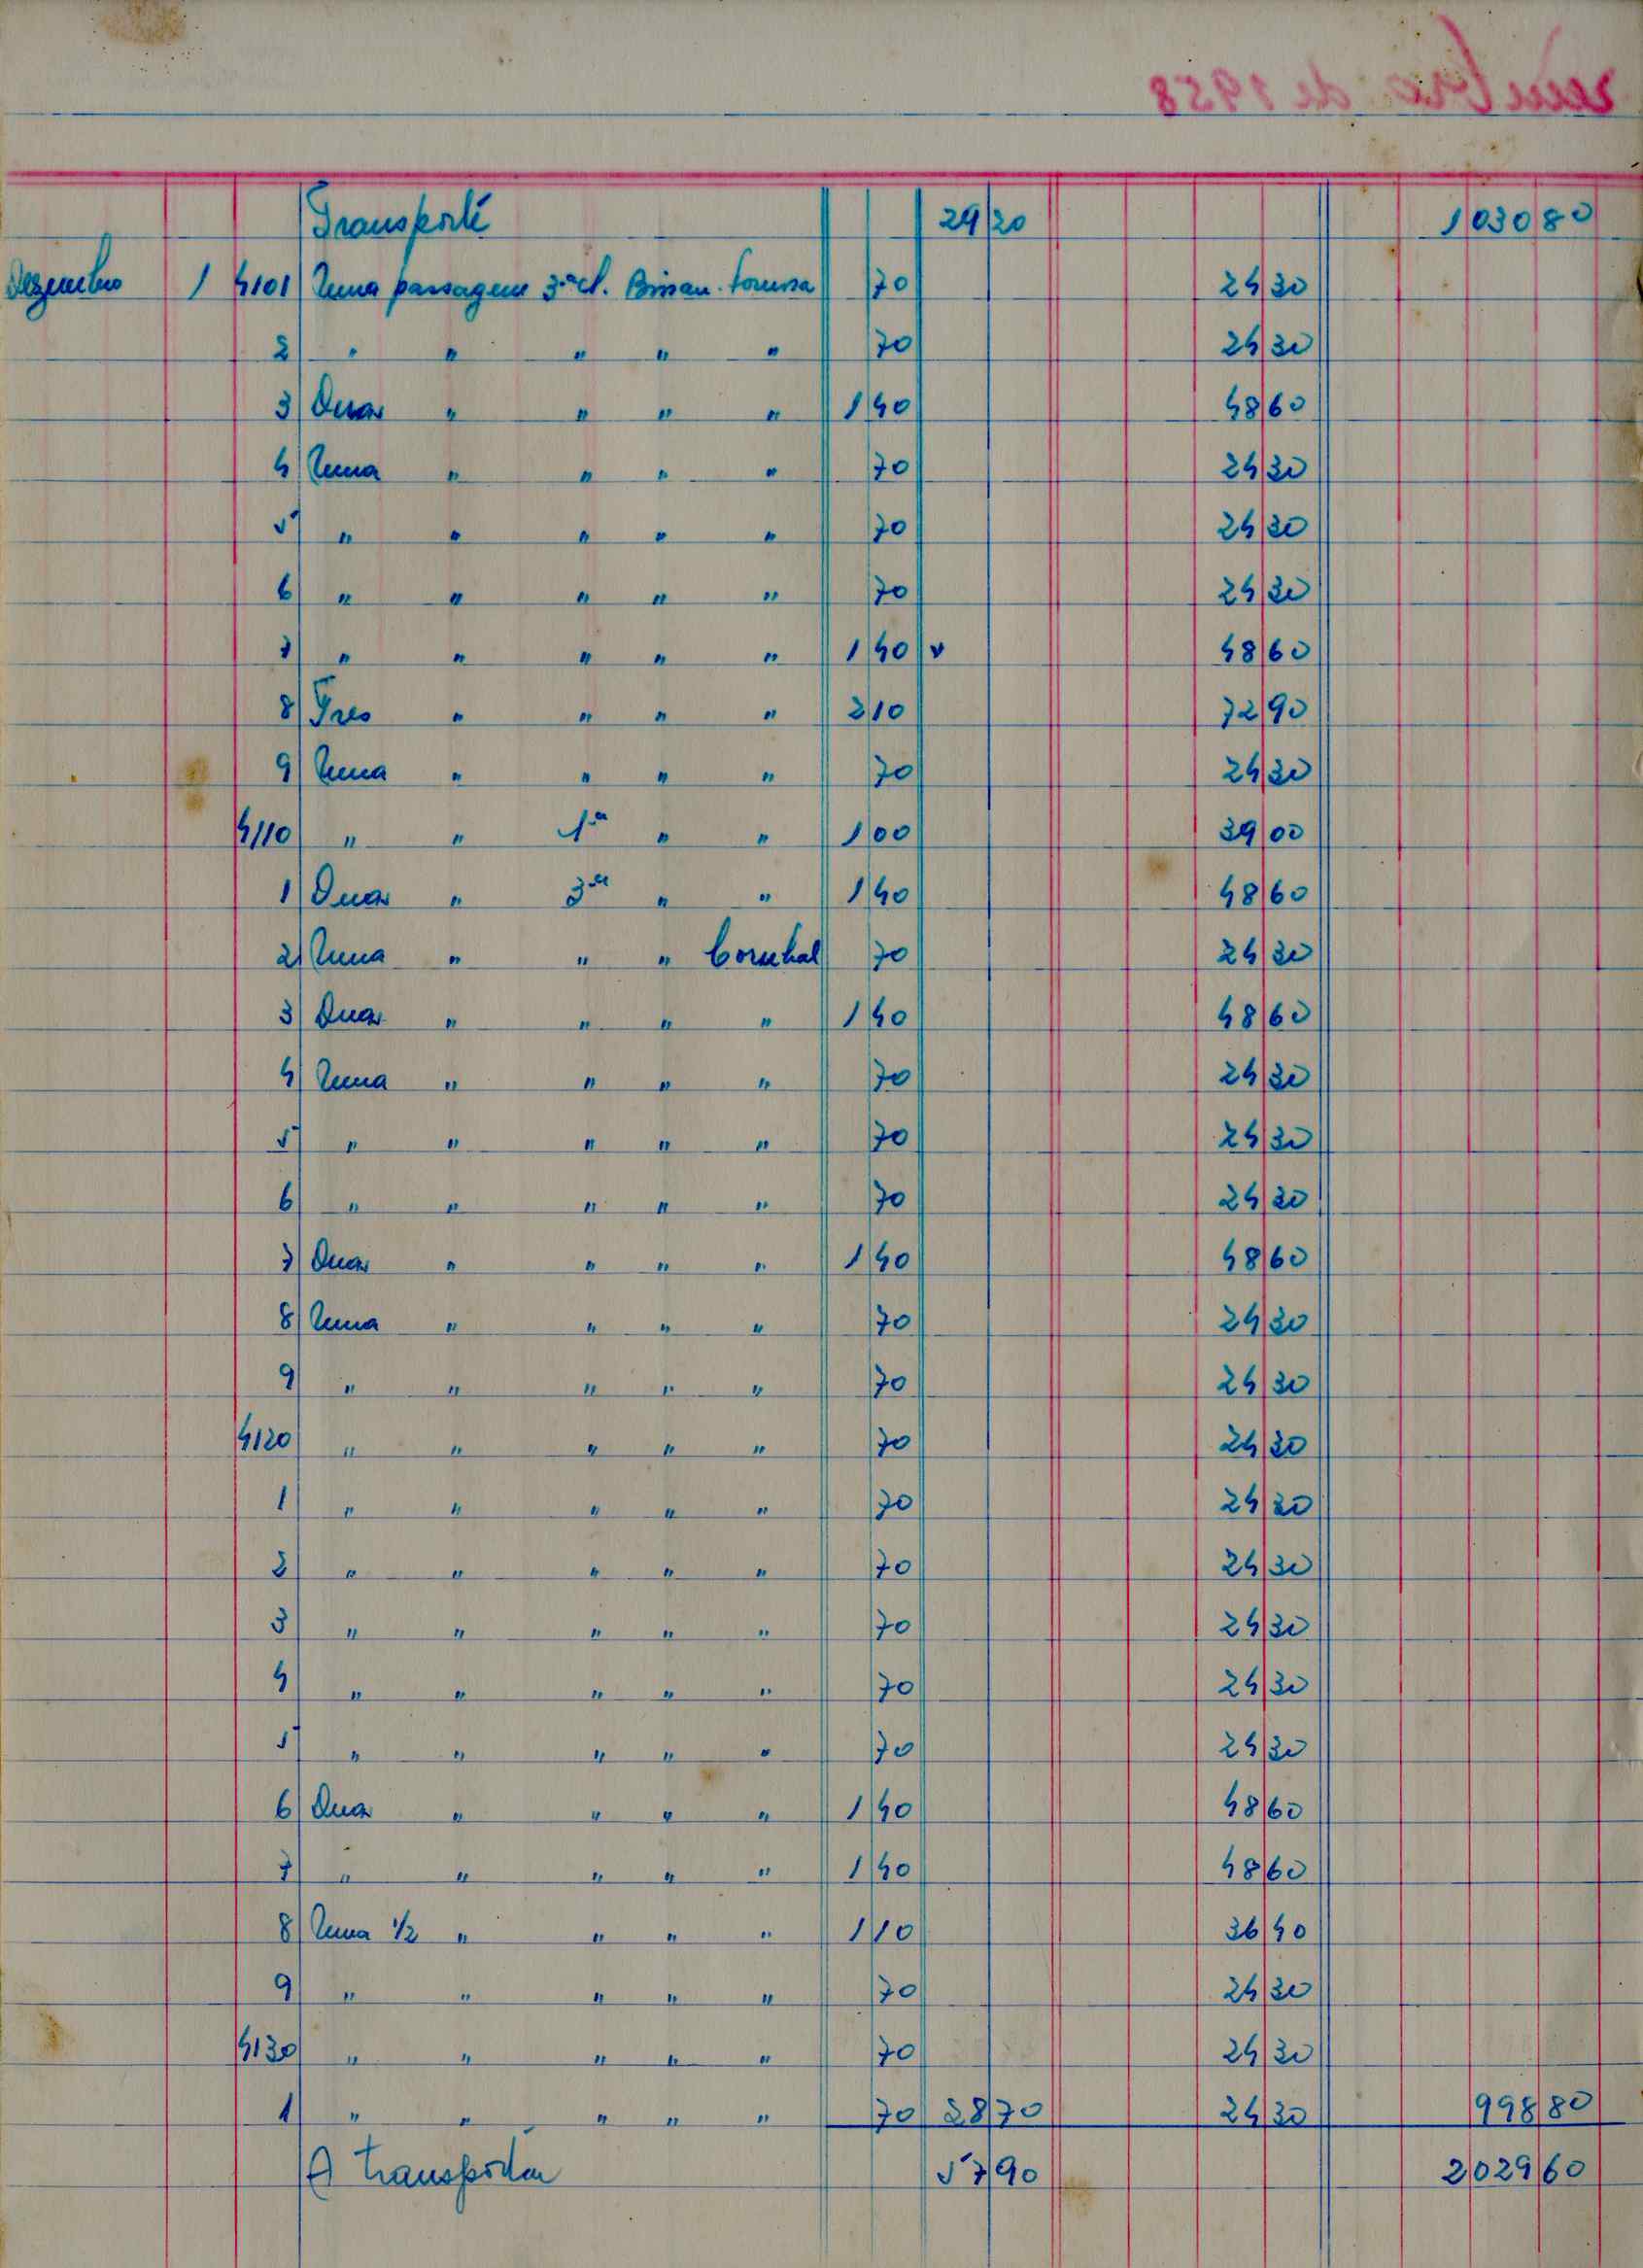 zembro de 1958
Transporte 29 20 1 030 80
Dezembro 1 4101 Uma passagem 3.ª cl. Bissau. Corussa 70 24 30
2 " " " " " 70 24 30
3 Duas " " " " 1 40 48 60
4 Uma " " " " 70 24 30
5 " " " " " 70 24 30
6 " " " " " 70 24 30
7 " " " " " 1 40 v 48 60
8 Tres " " " " 2 10 72 90
9 Uma " " " " 70 24 30
4110 " " 1ª " " 1 00 39 00
1 Duas " 3ª " " 1 40 48 60
2 Uma " " " Corubal 70 24 30
3 Duas " " " " 1 40 48 60
4 Uma " " " " 70 24 30
5 " " " " " 70 24 30
6 " " " " " 70 24 30
7 Duas " " " " 1 40 48 60
8 Uma " " " " 70 24 30
9 " " " " " 70 24 30
4120 " " " " " 70 24 30
1 " " " " " 70 24 30
2 " " " " " 70 24 30
3 " " " " " 70 24 30
4 " " " " " 70 24 30
5 " " " " " 70 24 30
6 Duas " " " " 1 40 48 60
7 " " " " " 1 40 48 60
8 Uma 1/2 " " " " 1 10 36 40
9 " " " " " 70 24 30
4130 " " " " " 70 24 30
1 " " " " " 70 28 70 24 30 998 80
A transportar 57 90 2 029 60